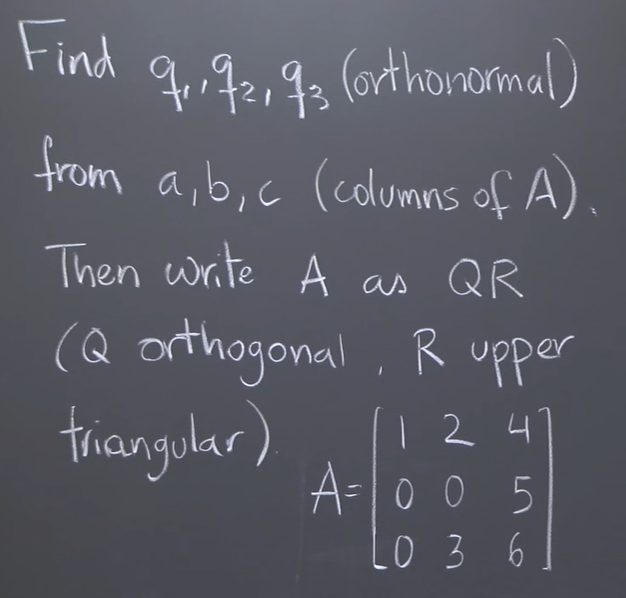 Find q₁, q₂, q₃ (orthonormal)
from a, b, c (columns of A).
Then write A as QR
(Q orthogonal, R upper
triangular).
A = [1 2 4
0 0 5
0 3 6]